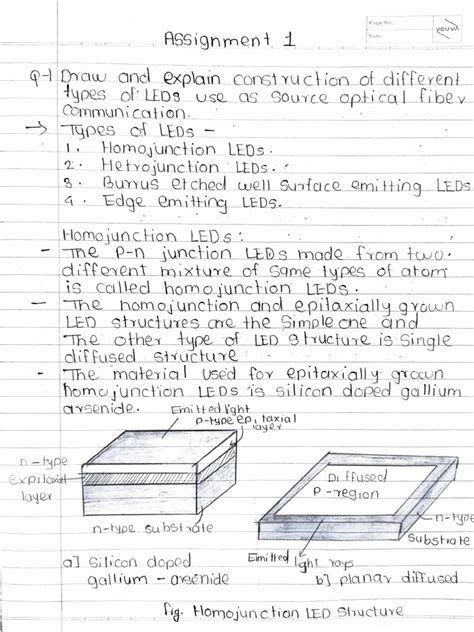 Assignment 1
Page No.:
Date:
youva
Q-1 Draw and explain construction of different
types of LEDs use as source optical fiber
communication.
→ Types of LEDs -
1. Homojunction LEDs.
2. Hetrojunction LEDs.
3. Burrus etched well surface emitting LEDs
4. Edge emitting LEDs.
Homojunction LEDs :
- The p-n junction LEDs made from two
different mixture of same types of atom
is called homojunction LEDs.
- The homojunction and epitaxially grown
LED structures are the simple one and
The other type of LED structure is single
diffused structure.
- The material used for epitaxially grown
homojunction LEDs is silicon doped gallium
arsenide.
Emitted light
p-type epitaxial
layer
n-type
expilaxial
layer
n-type substrate
Diffused
P-region
n-type
substrate
Emitted light rays
a] silicon doped
gallium - arsenide
b] planar diffused
fig. Homojunction LED structure